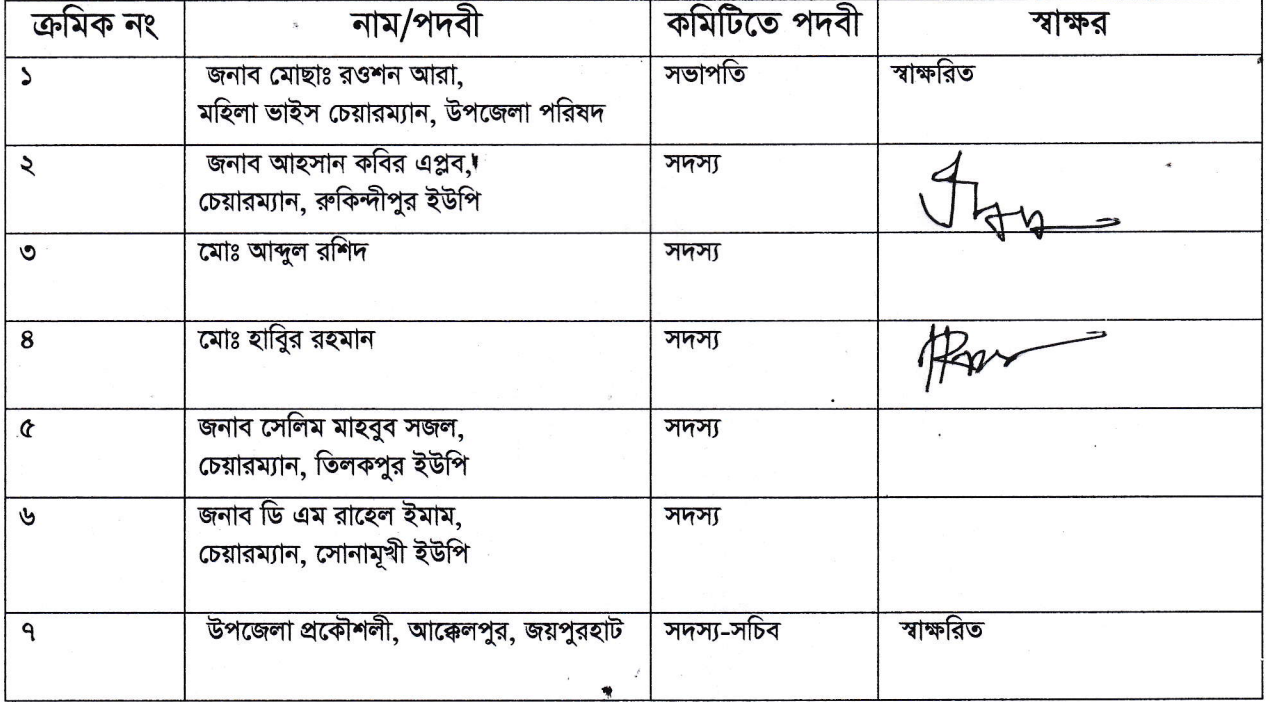 ক্রমিক নং নাম/পদবী কমিটিতে পদবী স্বাক্ষর
১ জনাব মোছাঃ রওশন আরা, সভাপতি স্বাক্ষরিত
মহিলা ভাইস চেয়ারম্যান, উপজেলা পরিষদ
২ জনাব আহসান কবির এপ্লব, সদস্য
চেয়ারম্যান, রুকিন্দীপুর ইউপি
৩ মোঃ আব্দুল রশিদ সদস্য
৪ মোঃ হাবিুর রহমান সদস্য
৫ জনাব সেলিম মাহবুব সজল, সদস্য
চেয়ারম্যান, তিলকপুর ইউপি
৬ জনাব ডি এম রাহেল ইমাম, সদস্য
চেয়ারম্যান, সোনামূখী ইউপি
৭ উপজেলা প্রকৌশলী, আক্কেলপুর, জয়পুরহাট সদস্য-সচিব স্বাক্ষরিত